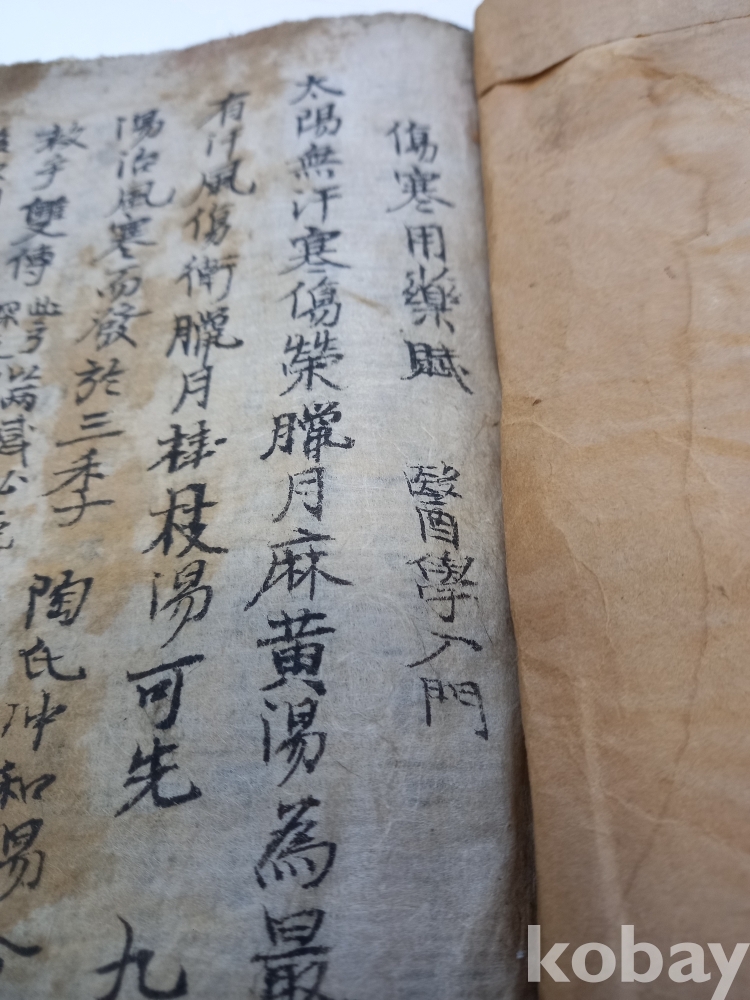 傷寒用藥賦 醫學入門
太陽無汗寒傷榮臘月麻黄湯為最
有汗風傷衛臘月桂枝湯可先 九
湯治風寒而發於三季 陶氏冲和湯
雙傳
kobay